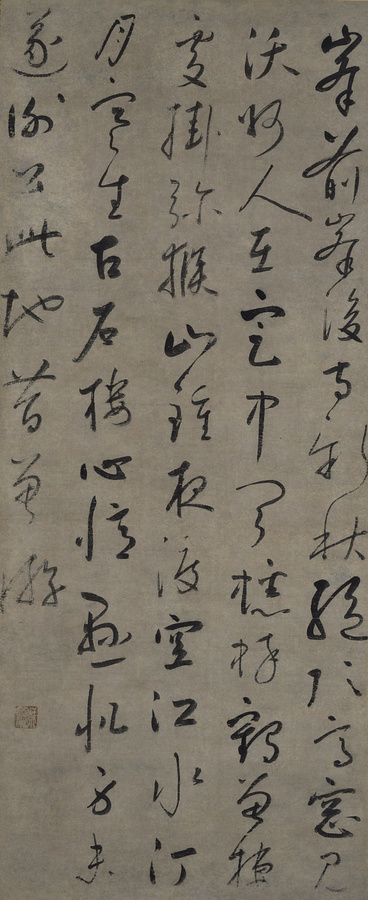 峯前峯後寺新秋絕頂高窓見
沃州人在定中聞蟋蟀鶴曾棲
處掛猕猴山鐘夜渡空江水汀
月寒生古石樓心憶懸帆身未
遂謝公此地昔曾遊